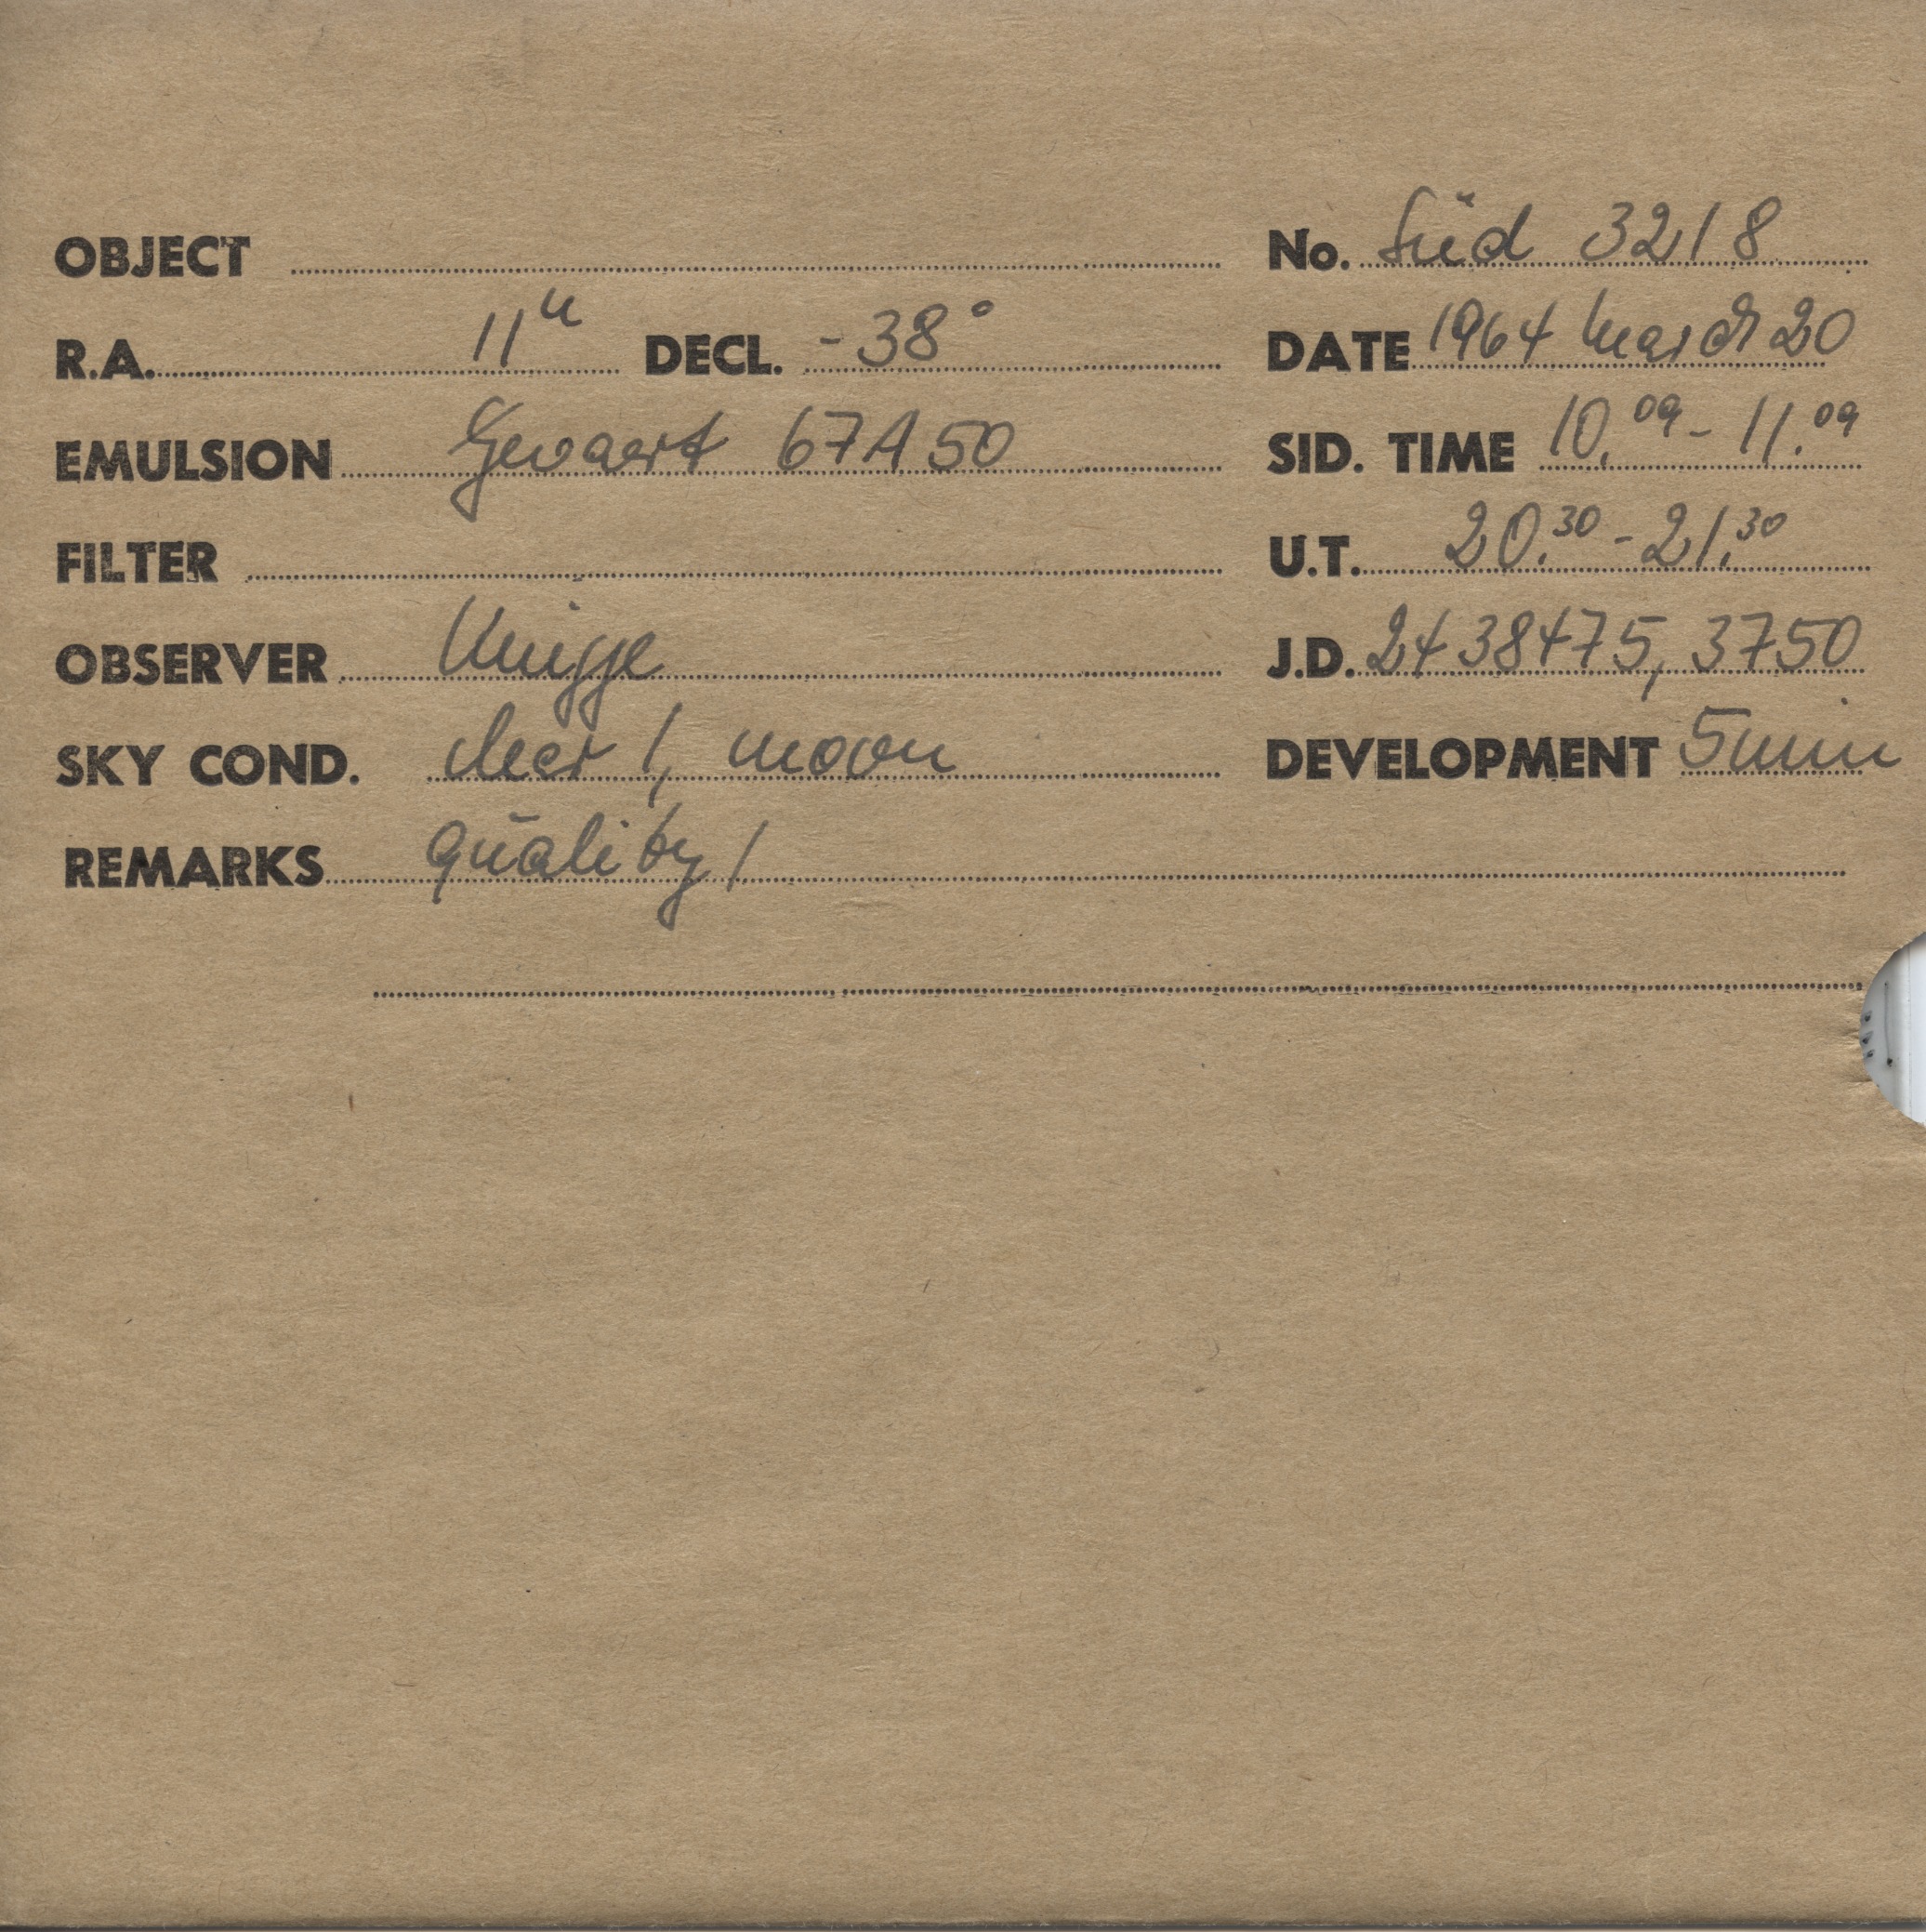 OBJECT No. Süd 3218
R.A. 11h DECL. -38° DATE 1964 March 20
EMULSION Gevaert 67A50 SID. TIME 10.09 - 11.09
FILTER U.T. 20.30 - 21.30
OBSERVER Knigge J.D. 2438475,3750
SKY COND. clear 1, moon DEVELOPMENT 5min
REMARKS quality 1